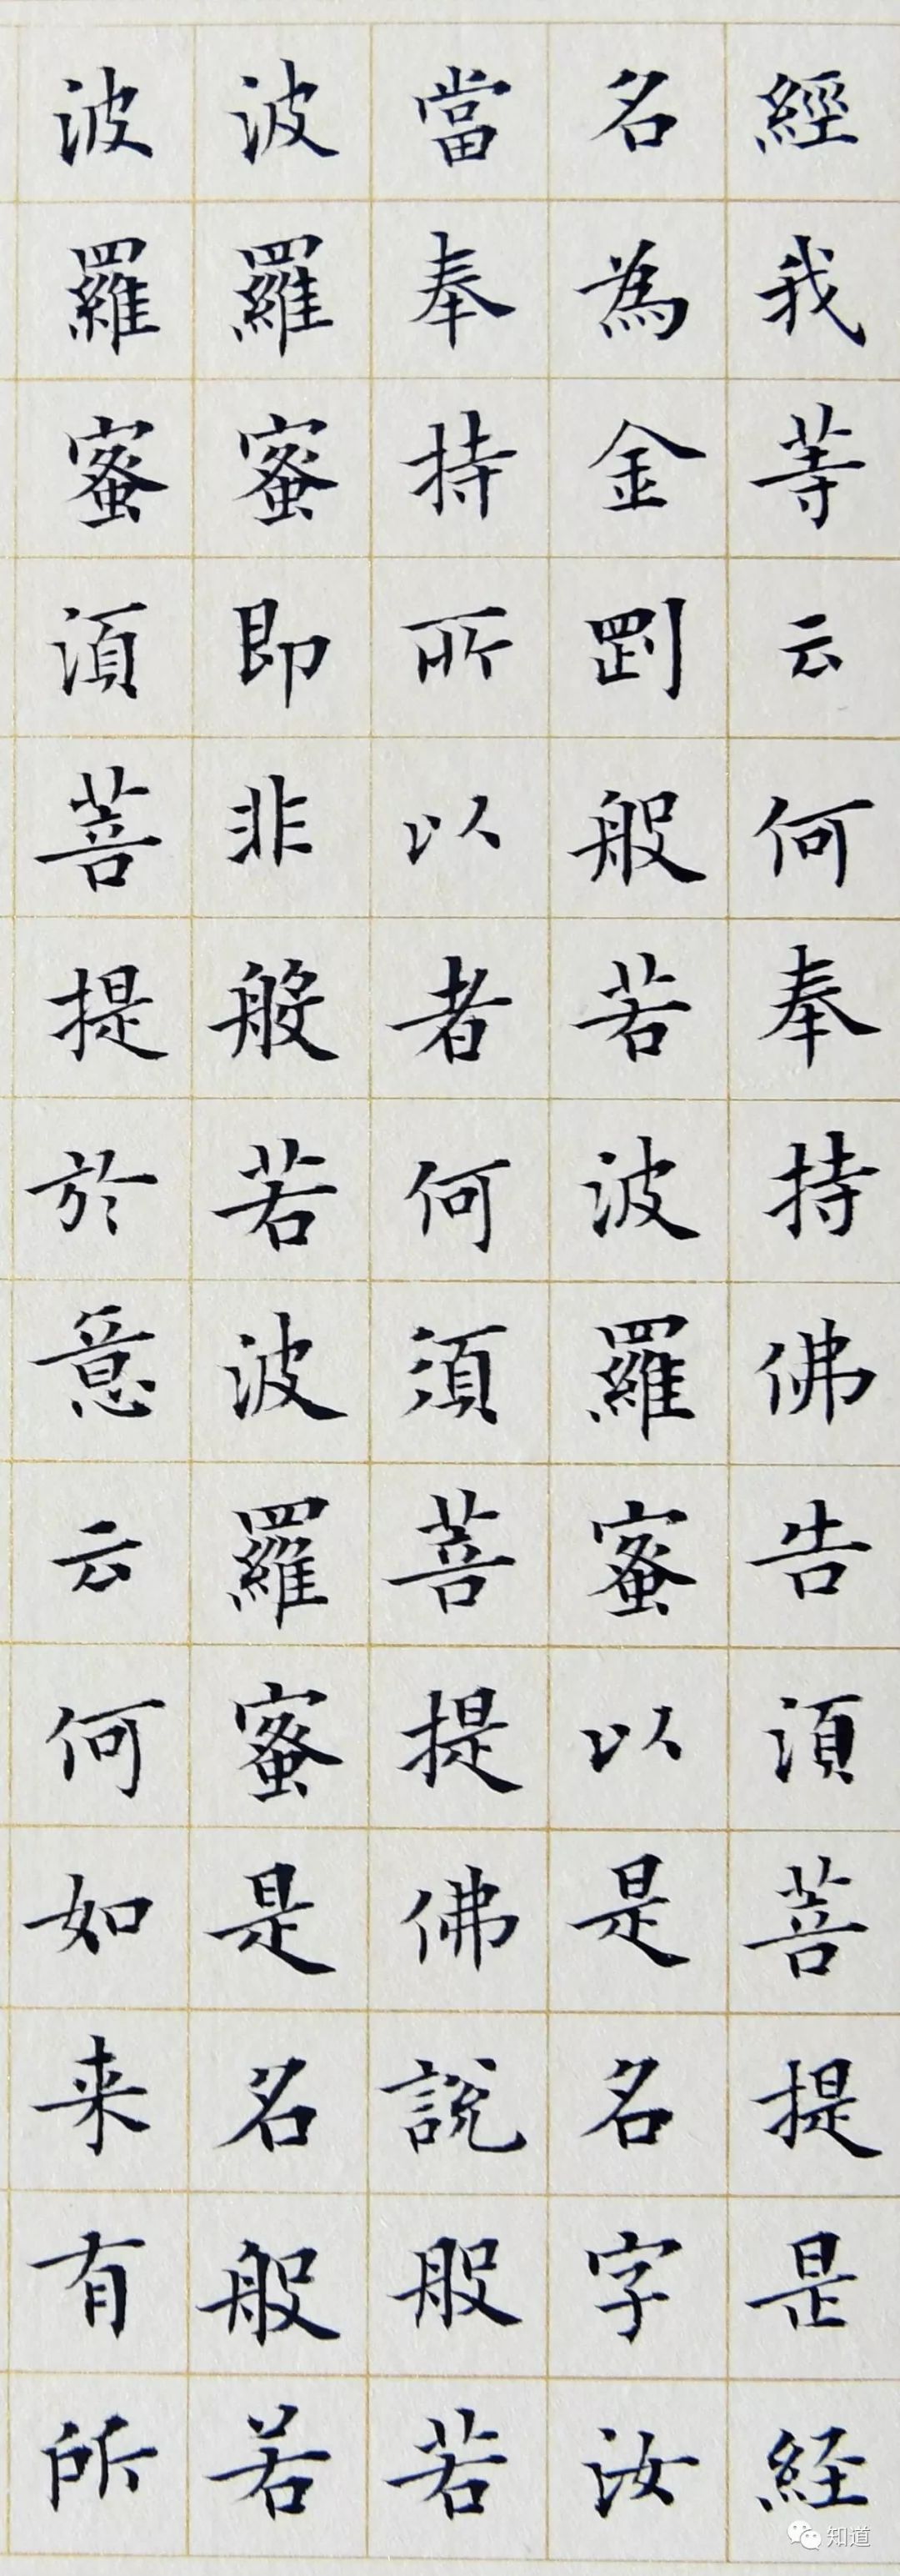 經我等云何奉持佛告須菩提是経
名為金剛般若波羅蜜以是名字汝
當奉持所以者何須菩提佛說般若
波羅蜜即非般若波羅蜜是名般若
波羅蜜須菩提於意云何如来有所
知道